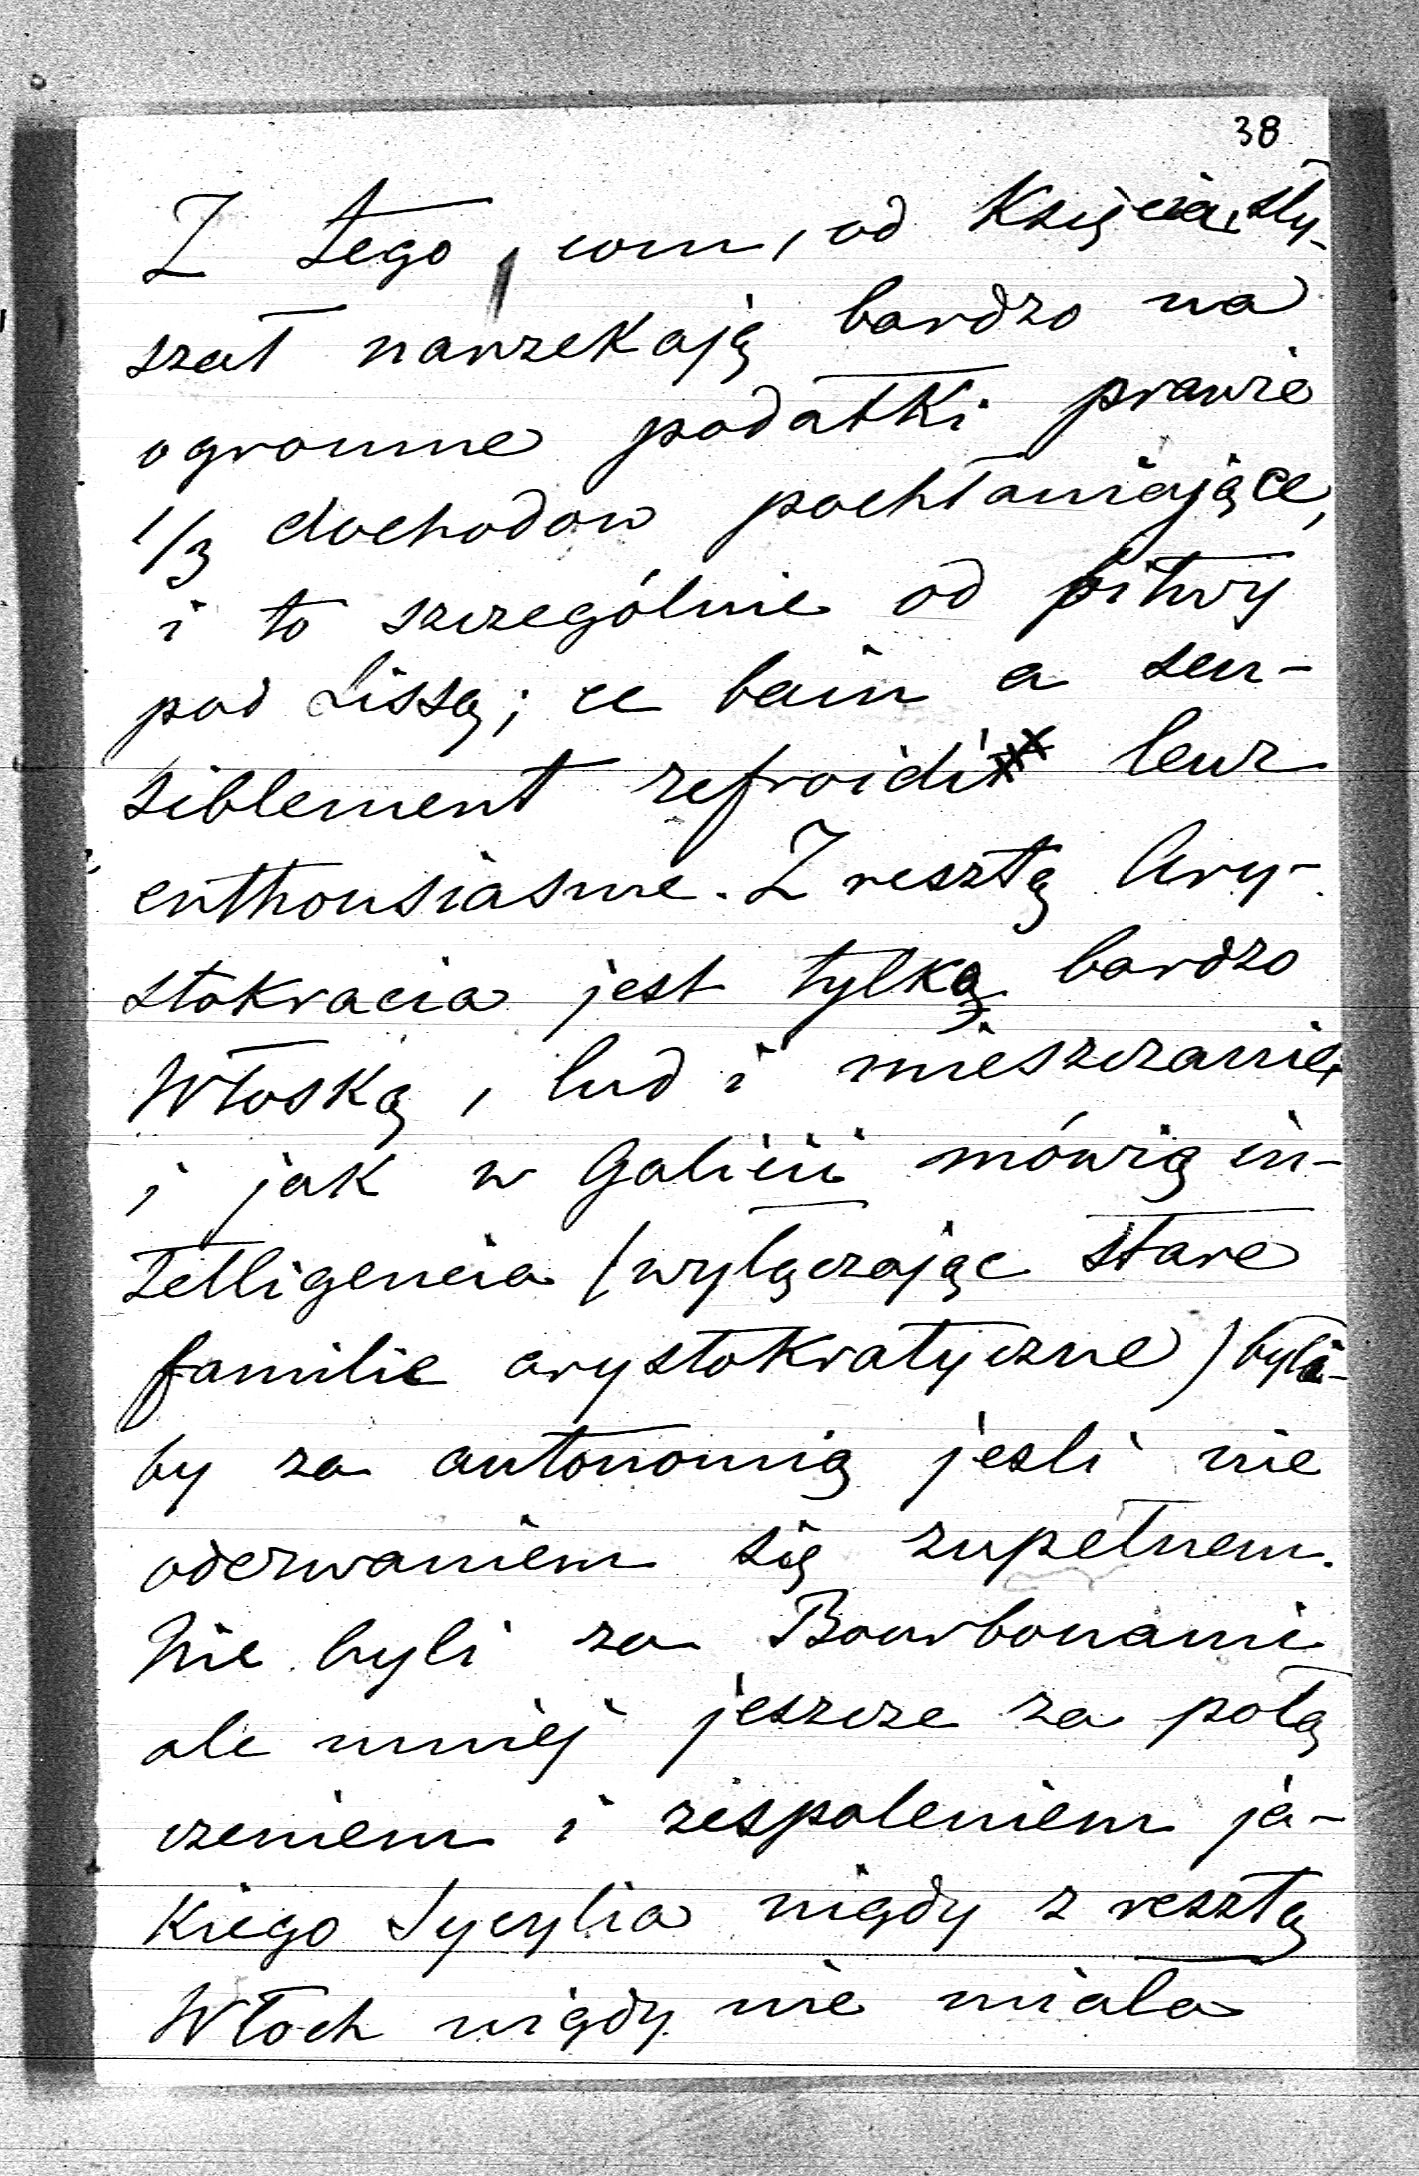 38
Z tego, com, od Księcia, sły-
szał narzekają bardzo na
ogromne podatki prawie
1/3 dochodow pochłaniające,
i to szczególnie od bitwy
pod Lissą; ce bain a sen-
siblement refroidi leur
enthousiasme. Z resztą Ary-
stokracia jest tylką bardzo
Włoską, lud i mieszczanie,
i jak w Galicii mówią in-
telligencia (wyłączając stare
familie arystokratyczne) byli-
by za autonomią jesli nie
oderwaniem się zupełnem.
Nie byli za Bourbonami
ale mniej jeszcze za połą
czeniem i zespoleniem ja-
kiego Sycylia nigdy z resztą
Włoch nigdy nie miała